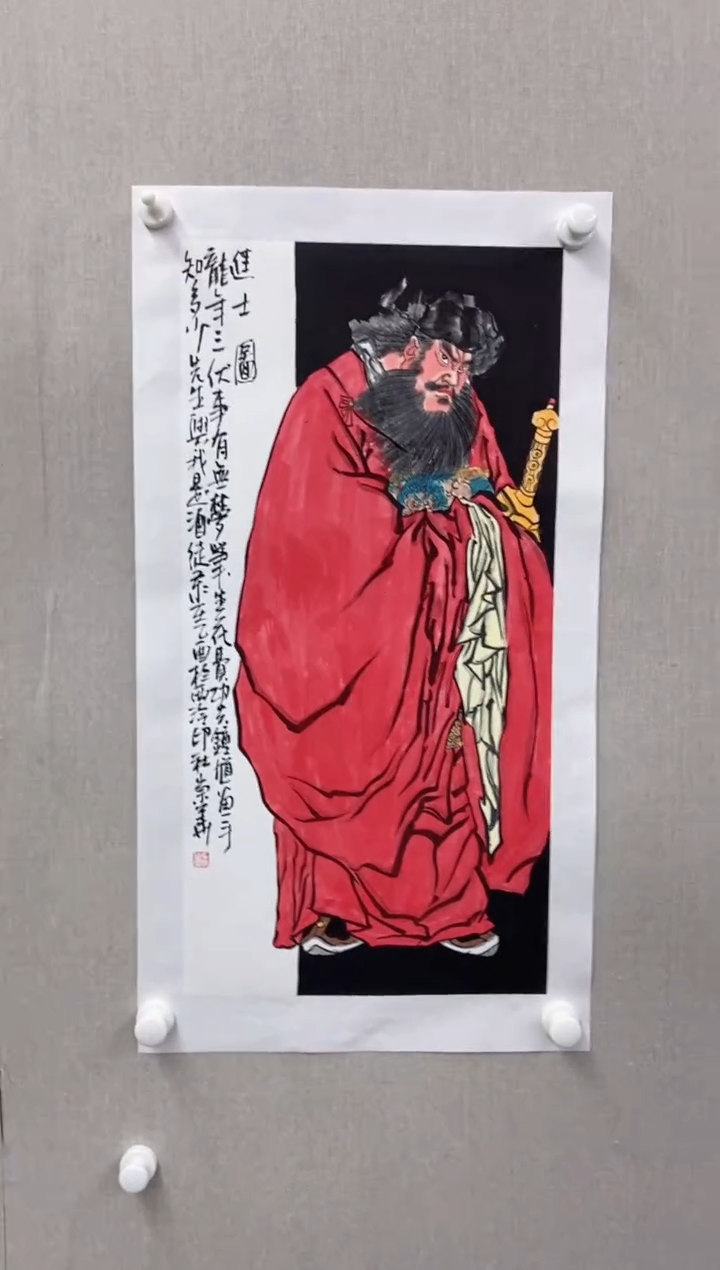 進士圖
龍年三伏事有無夢筆生花費功夫鍾馗
知多少先生與我是酒徒乙酉於西泠印社